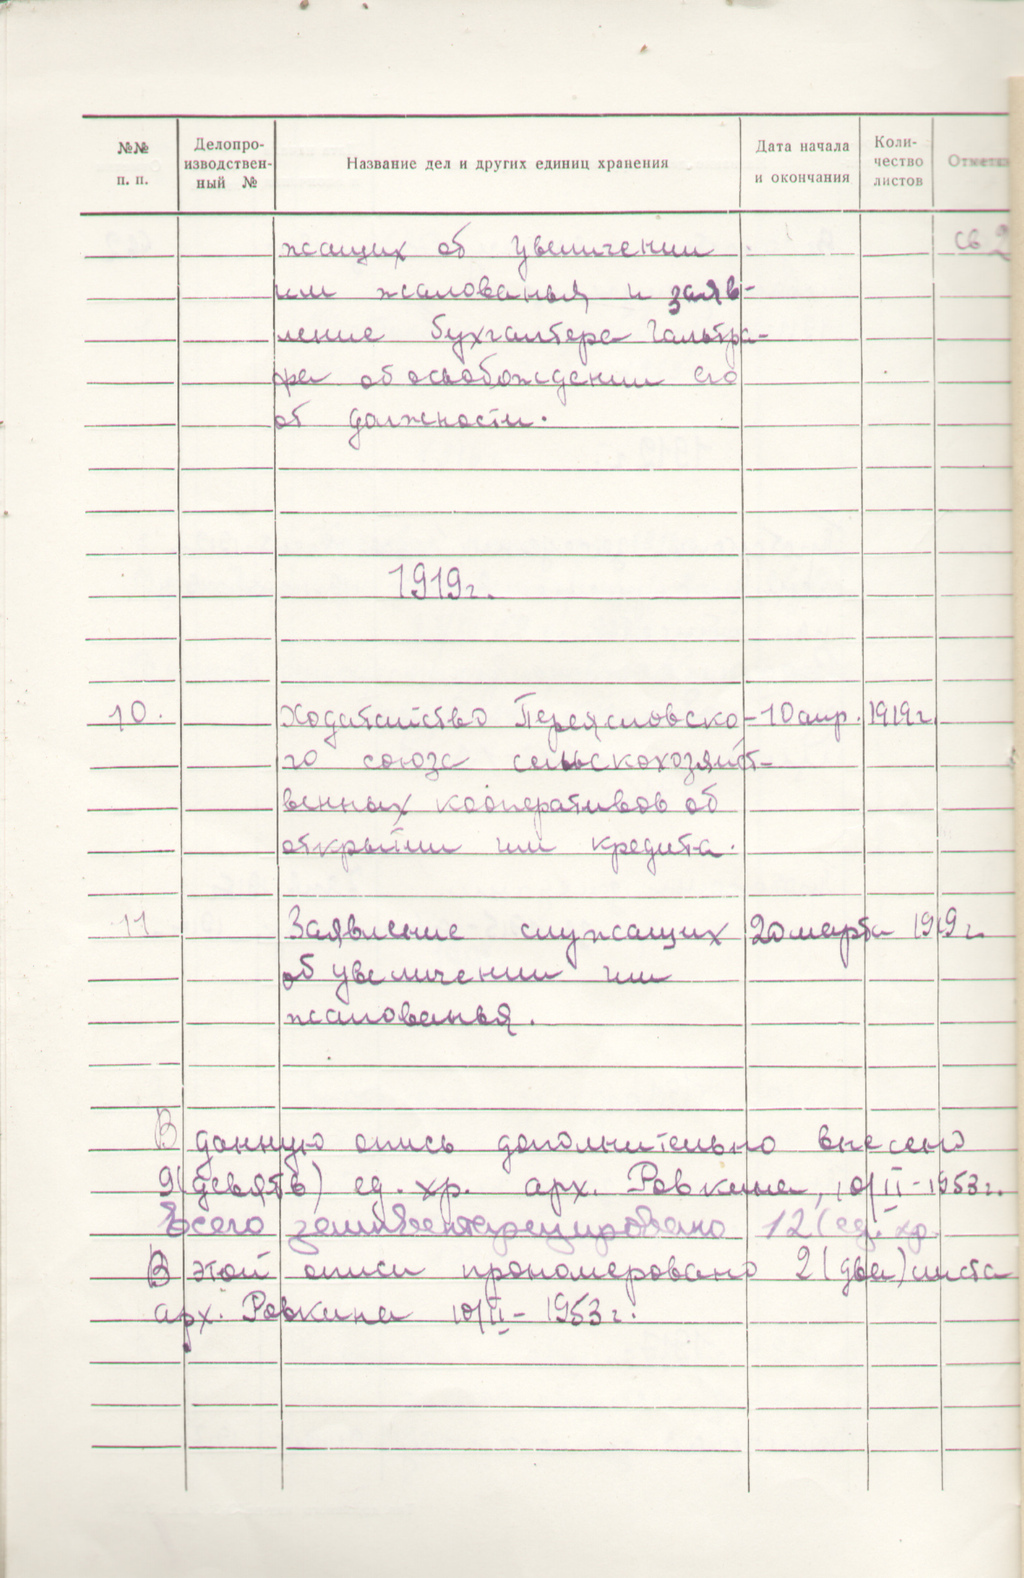 №№ п. п.
Делопроизводственный №
Название дел и других единиц хранения
Дата начала и окончания
Количество листов
Отметка
жащих об увеличении
св 2
им жалованья и заяв-
ление бухгалтера Гальтра-
фа об освобождении его
от должности.
1919г.
10. Ходатайство Переясловско- 10 апр. 1919г.
го союза сельскохозяйст-
венных кооперативов об
открытии им кредита.
11 Заявление служащих 20 марта 1919г.
об увеличении им
жалованья.
В данную опись дополнительно внесено
9(девять) ед. хр. арх. Ровкина, 10/II-1953г.
Всего 12 (ед. хр.
В этой описи прономеровано 2 (два) листа
арх. Ровкина 10/II-1953г.